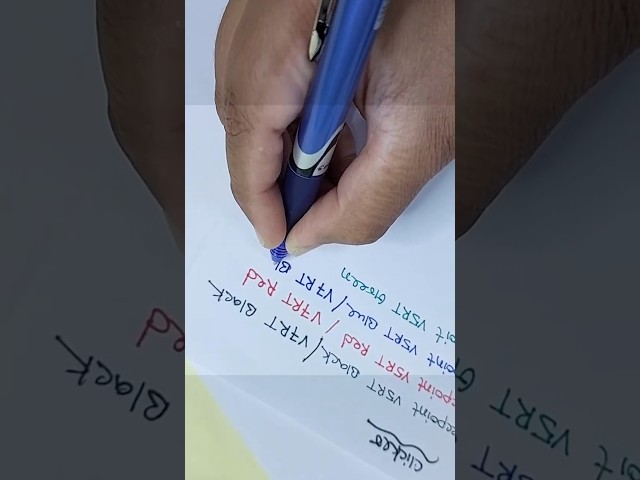 clicker
cepoint V5RT Black/V7RT Black
cepoint V5RT Red / V7RT Red
point V5RT Blue/V7RT Bl
oint V5RT Green